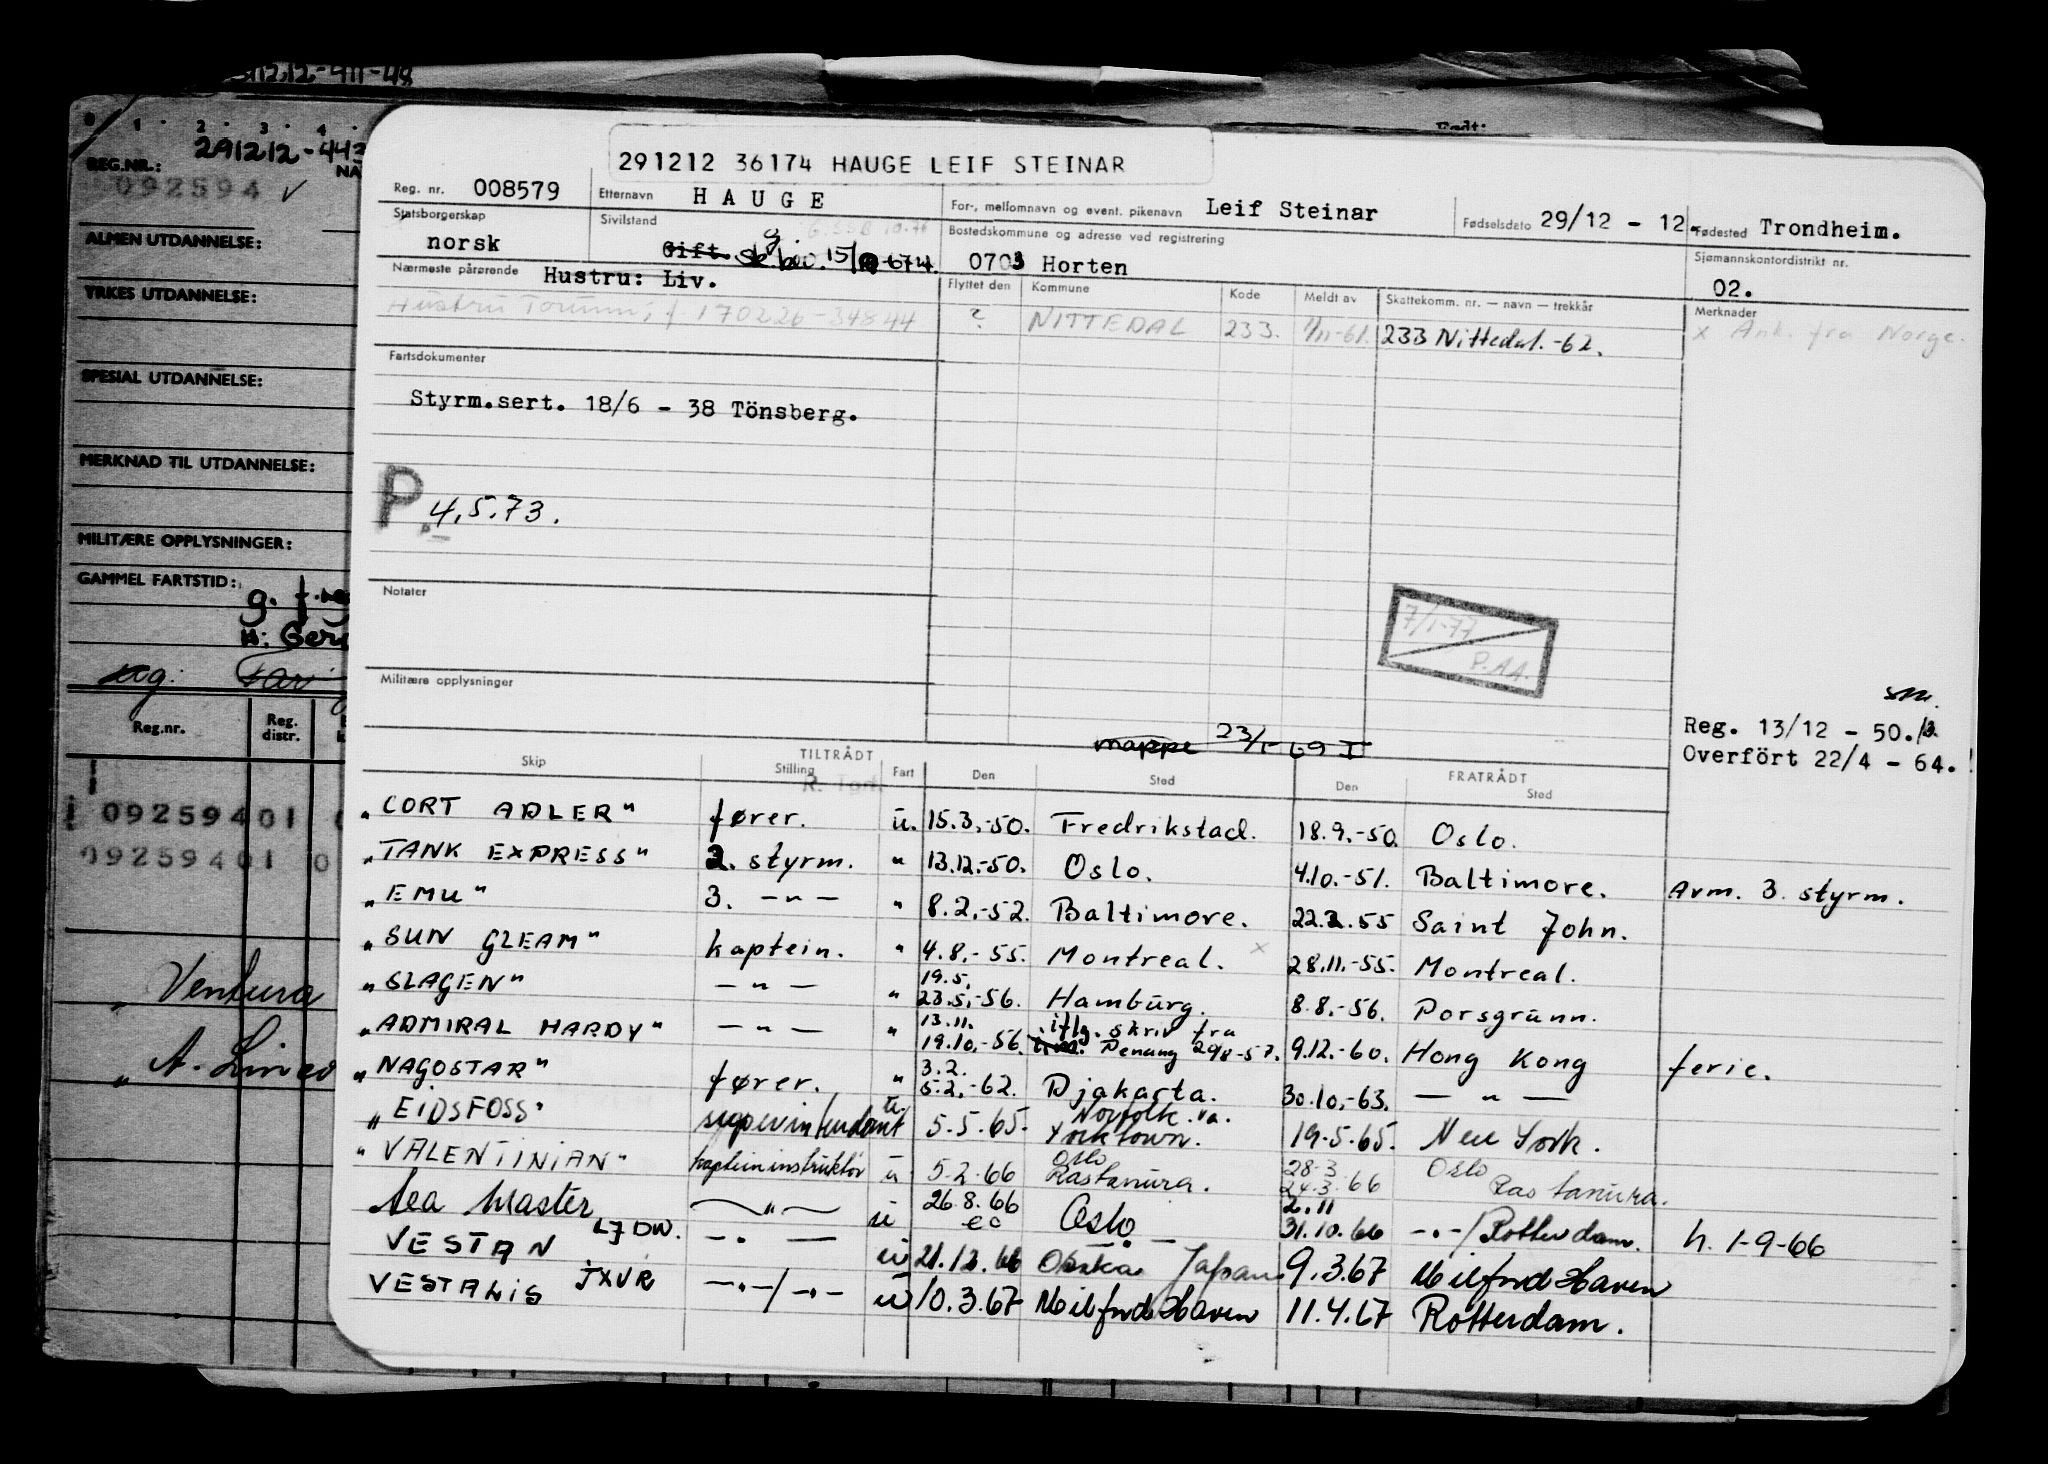 291212 36174 HAUGE LEIF STEINAR
Reg. nr. 008579 Etternavn HAUGE For-, mellomnavn og event. pikenavn Leif Steinar Fødselsdato 29/12 - 12. Fødested Trondheim.
Statsborgerskap norsk Sivilstand Gift. Bostedskommune og adresse ved registrering 0703 Horten Sjømannskontordistrikt nr. 02.
Nærmeste pårørende Hustru: Liv. Flyttet den Kommune Kode Meldt av Skattekomm. nr. — navn — trekkår Merknader
Hustru Torunn, f. 170226-34844 ? NITTEDAL 233. 1/11-61. 233 Nittedal.-62. x Ank. fra Norge.
Fartsdokumenter
Styrm.sert. 18/6 - 38 Tönsberg.
P 4.5.73.
Notater
7/1-77
P.AA.
Militære opplysninger
Reg. 13/12 - 50.
Overfört 22/4 - 64.
mappe 23/1-69
Skip TILTRÅDT Stilling Fart Den Sted FRATRÅDT Den Sted
"CORT ADLER" fører. u. 15.3.-50. Fredrikstad. 18.9.-50. Oslo.
"TANK EXPRESS" 2. styrm. " 13.12.-50. Oslo. 4.10.-51. Baltimore. Avm. 3. styrm.
"EMU" 3. — " — " 8.2.-52. Baltimore. 22.2.55 Saint John.
"SUN GLEAM" kaptein. " 4.8.-55. Montreal. x 28.11.-55. Montreal.
"SLAGEN" — " — " 19.5. 23.5.-56. Hamburg. 8.8.-56. Porsgrunn.
"ADMIRAL HARDY" — " — " 13.11. 19.10.-56. iflg. skriv fra Penang 29/8-57. 9.12.-60. Hong Kong ferie.
"NAGOSTAR" fører. " 3.2. 5.2.-62. Djakarta. 30.10.-63. — " —
"EIDSFOSS" superintendent u. 5.5.65. Norfolk. va. Yorktown. 19.5.65. New York.
"VALENTINIAN" kapteininstruktør u 5.2.66 Oslo Rastanura. 28.3 24.3.66 Oslo Ras tanura.
Sea Master — " — u 26.8.66 Oslo 2.11 31.10.66 — " —/Rotterdam. h. 1-9-66
VESTAN LJDW. — " — u 21.12.66 Osaka Japan 9.3.67 Milford Haven
VESTALIS JXVR — " —/— " — u 10.3.67 Milford Haven 11.4.67 Rotterdam.
291212-443
REG.NR.: 092594
ALMEN UTDANNELSE:
YRKES UTDANNELSE:
SPESIAL UTDANNELSE:
MERKNAD TIL UTDANNELSE:
MILITÆRE OPPLYSNINGER:
GAMMEL FARTSTID:
Reg.nr. Reg. distr.
09259401
09259401 0
" Ventura